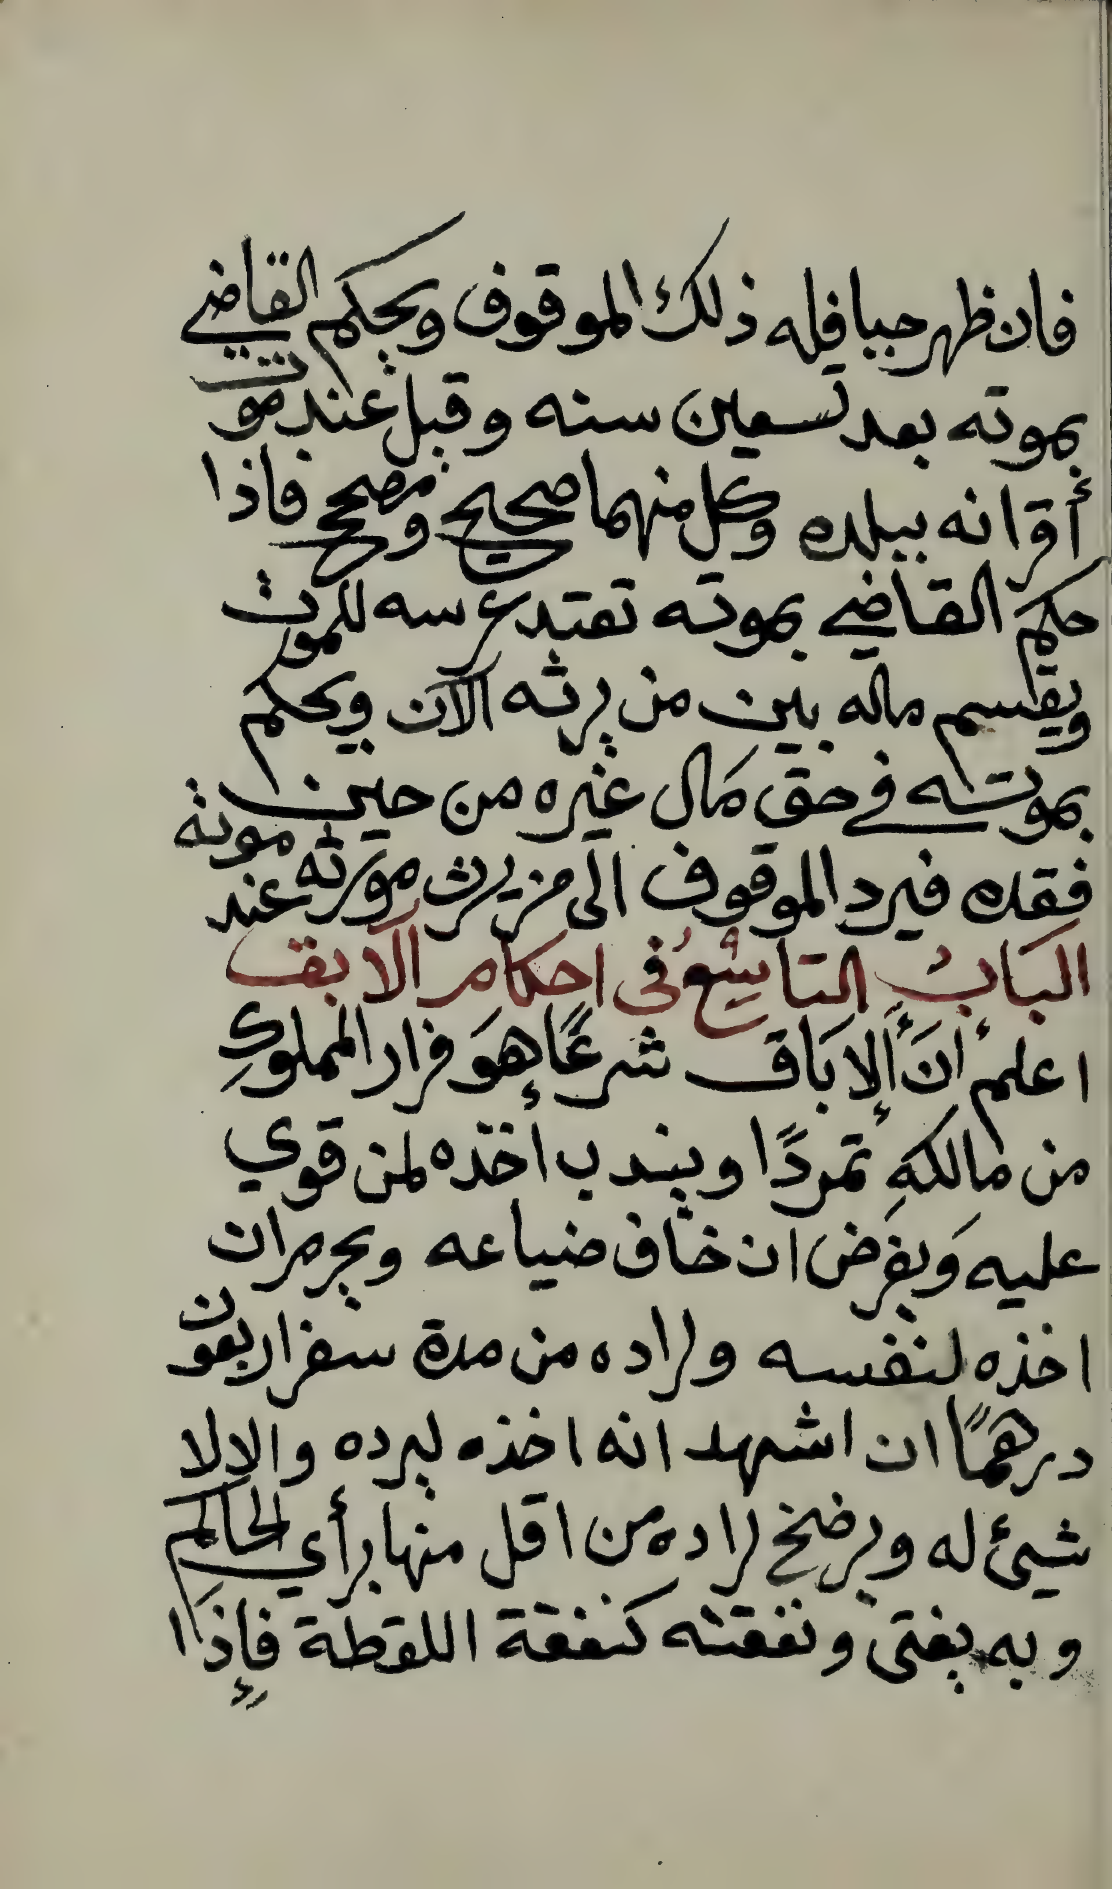 فان ظهر حيا فله ذلك الموقوف ويحكم القاضي
بموته بعد تسعين سنه وقبل عند موت
أقرانه ببلده وكل منهما صحيح ومصحح فاذا
حكم القاضي بموته تعتد عرسه للموت
ويقسم ماله بين من يرثه الآن ويحكم
بموته في حق مال غيره من حين
فقده فيرد الموقوف الى من يرث مورثه عند موته
البَابُ التاسِعُ في احكام الآبق
اعلم أنَ ألابَاق شرعًا هوَ فرار المملوكِ
من مالكهِ تمردًا ويندب أخذه لمن قوي
عليه وَيفرَض ان خاف ضياعه ويحرم ان
اخذه لنفسه ولراده من مدة سفر اربعون
درهمًا ان اشهد انه اخذه ليرده والا لا
شيئ له ويرضخ لراده من اقل منها برأي الحاكم
وبه يفتى ونفقته كنفقة اللقطة فإذَا